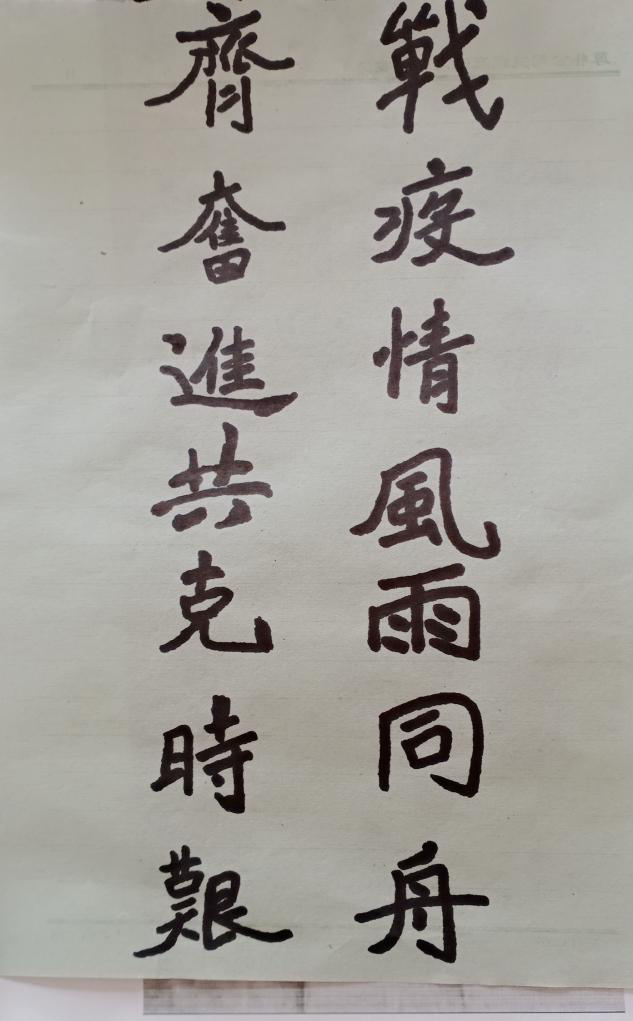 戰疫情風雨同舟
齊奮進共克時艱